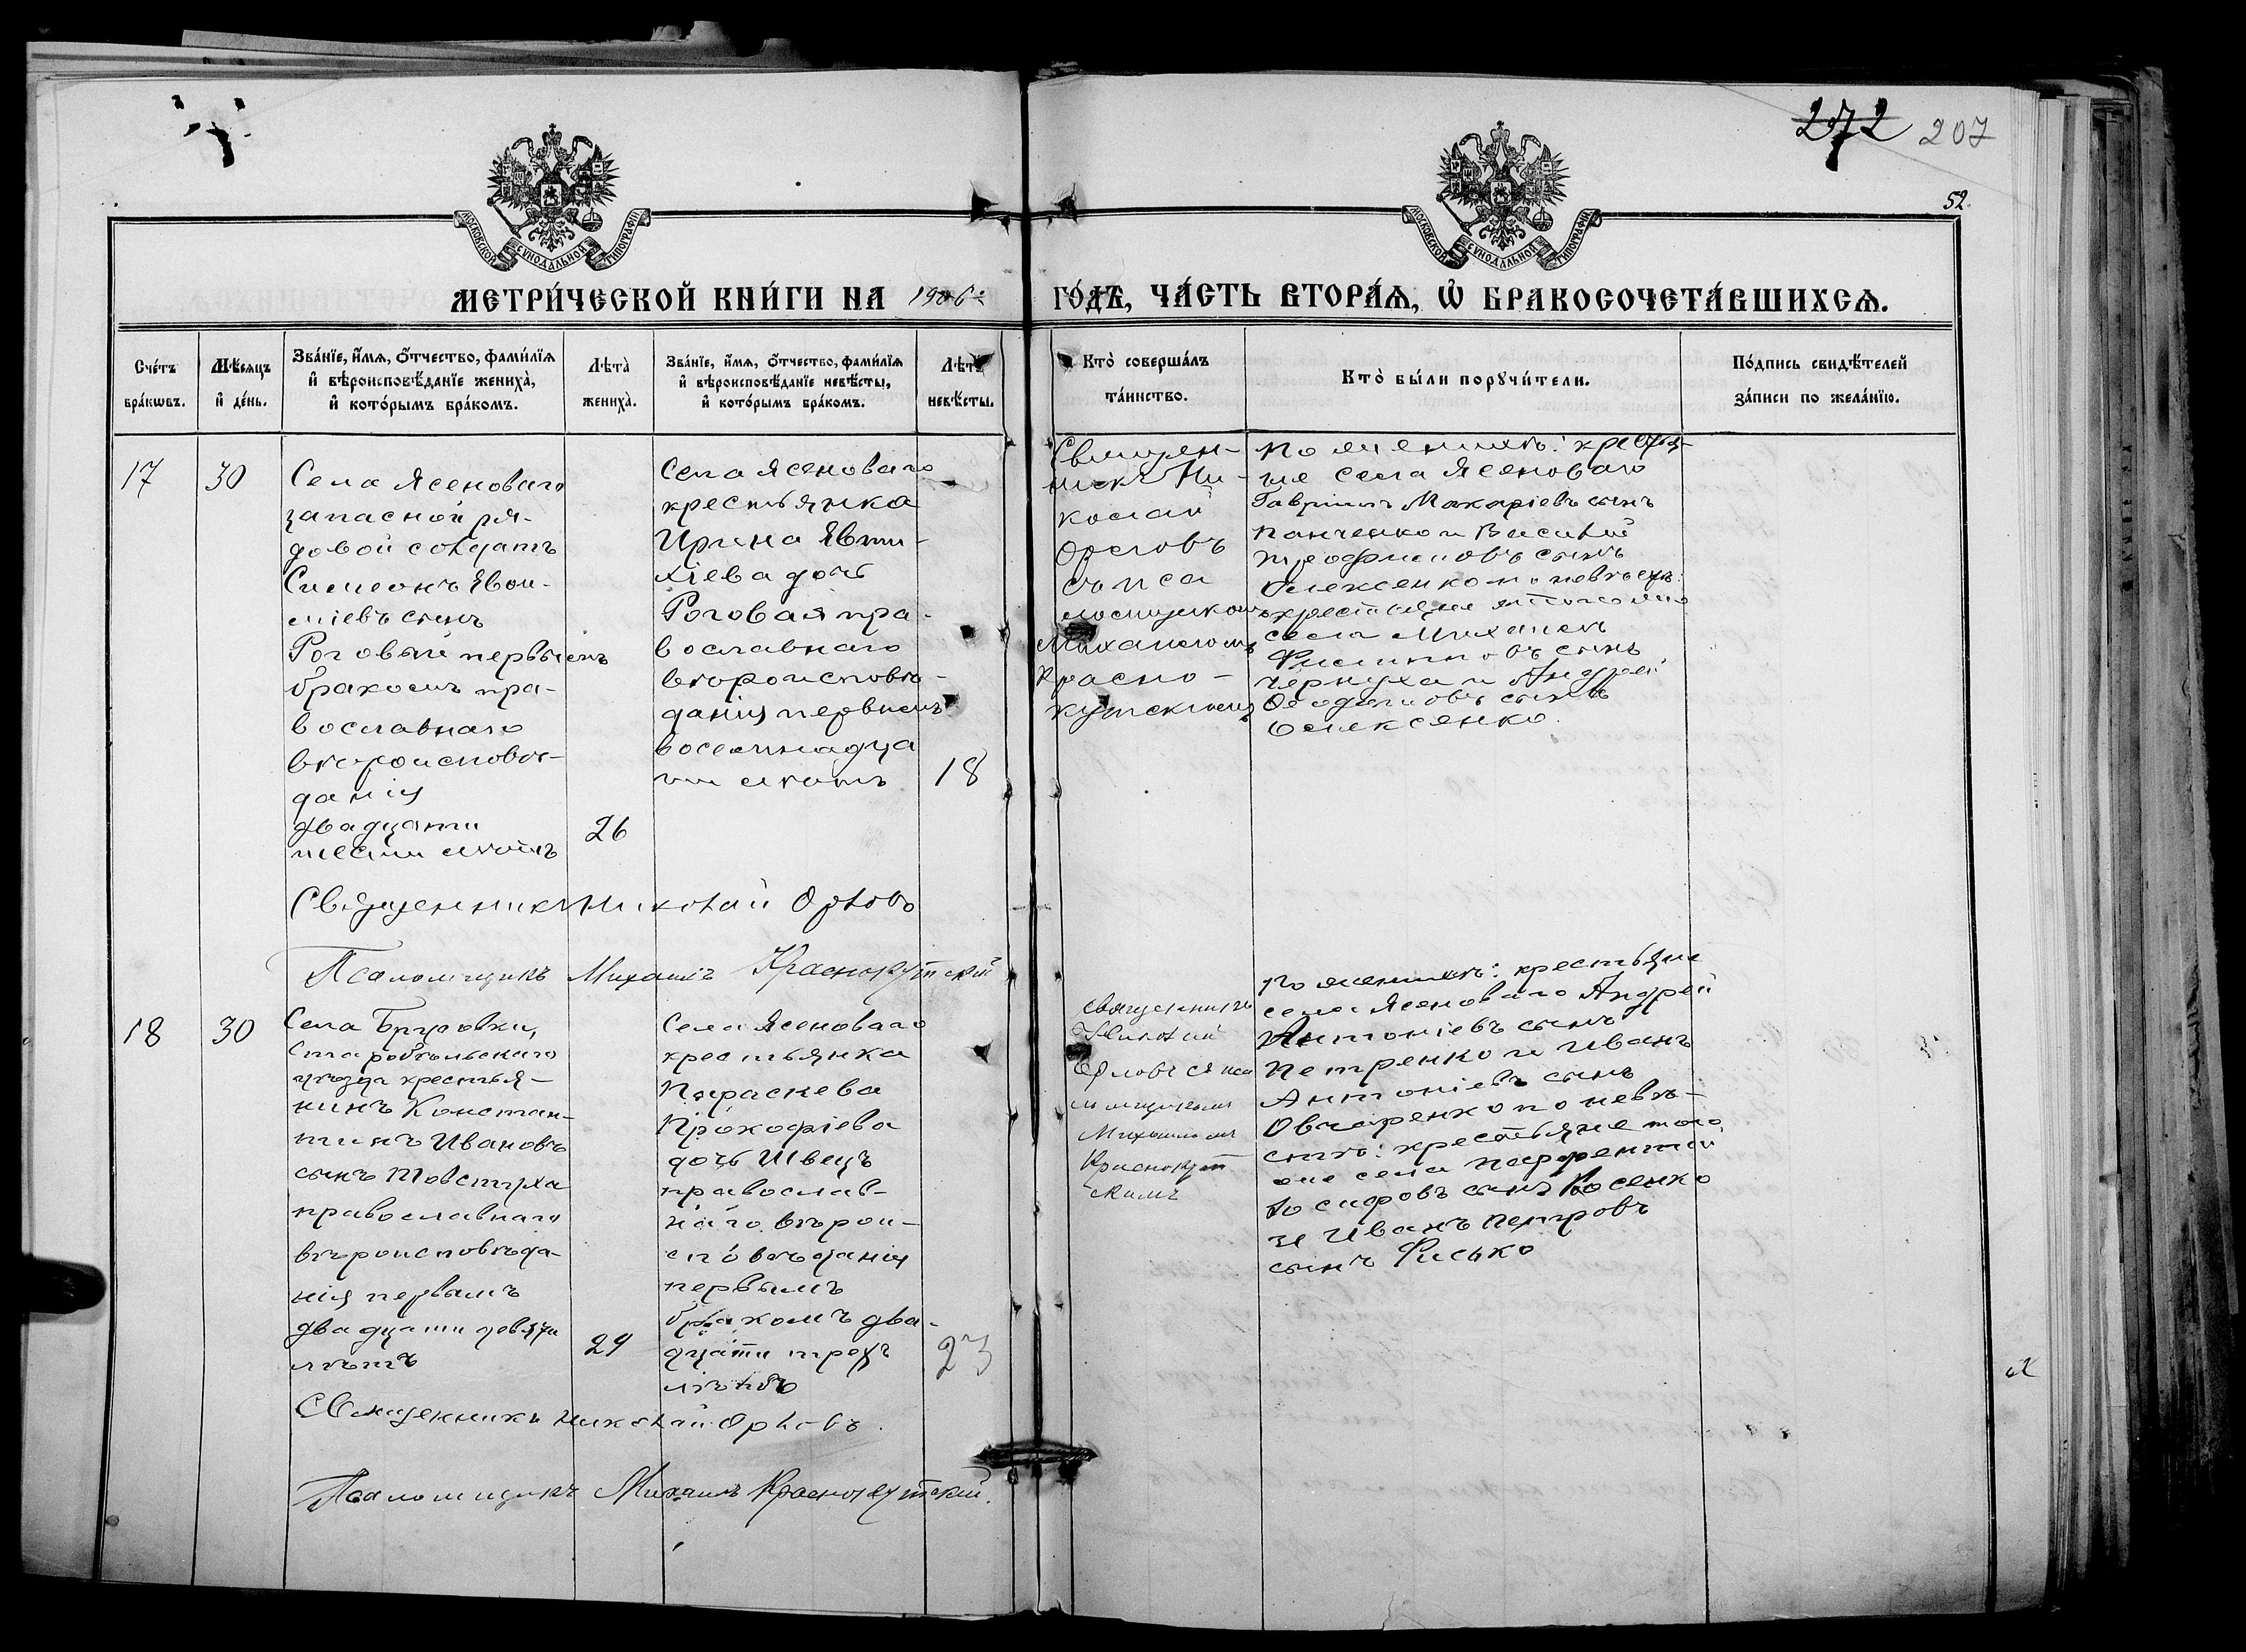 272 207
52.
МОСКОВСКОЙ СѴНОДАЛЬНОЙ ТИПОГРАФІИ
МОСКОВСКОЙ СѴНОДАЛЬНОЙ ТИПОГРАФІИ
МЕТРИ́ЧЕСКОЙ КНИ́ГИ НА 1906 ГО́ДЪ, ЧА́СТЬ ВТОРА́Ѧ, Ѽ БРАКОСОЧЕТА́ВШИХСѦ.
Сче́тъ
бра́кѡвъ.
Мѣ́сяцъ
и҆ де́нь.
Зва́нїе, и҆́мѧ, ѻ҆́тчество, фами́лїѧ
и҆ вѣроисповѣ́данїе жениха̀,
и҆ кото́рымъ бра́комъ.
Лѣта̀
жениха̀.
Зва́нїе, и҆́мѧ, ѻ҆́тчество, фами́лїѧ
и҆ вѣроисповѣ́данїе невѣ́сты,
и҆ кото́рымъ бра́комъ.
Лѣта̀
невѣ́сты.
Кто̀ соверша́лъ
та́инство.
Кто̀ бы́ли порꙋчи́тели.
По́дпись свидѣ́телей
за́писи по жела́нїю.
17
30
Села Ясеноваго
запасной ря-
довой солдатъ
Симеонъ
сынъ
Роговый первымъ
бракомъ пра-
вославнаго
вѣроисповѣ-
данія
двадцати
шести лѣтъ
26
Села Ясеноваго
крестьянка
Ирина Евти-
хіева дочь
Роговая пра-
вославнаго
вѣроисповѣ-
данія первымъ
восемнадца
ти лѣтъ
18
Священ-
никъ Ни-
колай
Орловъ
съ пса
ломщикомъ
Михаиломъ
Красно-
кутскимъ
По женихѣ: крестья-
не села Ясеноваго
Гавріилъ Макаріевъ сынъ
Панченко и Василій
Трофимовъ сынъ
Олексенко по невѣстѣ:
крестьяне
села Михаилъ
Филипповъ сынъ
Чернуха и Андрей
сынъ
Олексенко.
Священникъ Николай Орловъ
Псаломщикъ Михаилъ Краснокутскій
18
30
Села
Старобѣльскаго
уѣзда крестья-
нинъ Констан-
тинъ Ивановъ
сынъ Товстуха
православнаго
вѣроисповѣда-
нія первымъ
двадцати девяти
лѣтъ
29
Села Ясеноваго
крестьянка
Параскева
Прокофіева
дочь Швецъ
православ-
наго вѣрои-
сповѣданія
первымъ
бракомъ два-
дцати трехъ
лѣтъ
23
Священникъ
Николай
Орловъ съ пса
ломщикомъ
Михаиломъ
Краснокут
скимъ
По женихѣ: крестьяне
села Ясеноваго Андрей
Антоніевъ сынъ
Петренко и Иванъ
Антоніевъ сынъ
Овчаренко по невѣ-
стѣ: крестьяне того
же села
Іосифовъ сынъ Косенко
и Иванъ Петровъ
сынъ Фисько
Священникъ Николай Орловъ.
Псаломщикъ Михаилъ Краснокутскій.